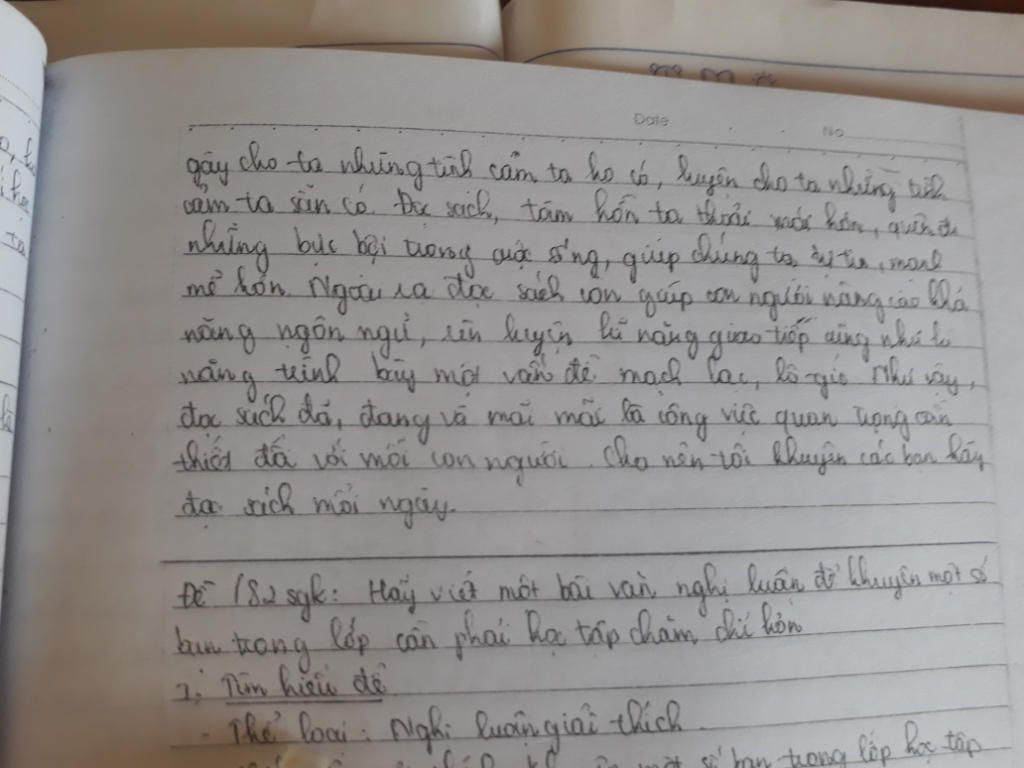 Date No
gây cho ta những tình cảm ta ko có, luyện cho ta những tình
cảm ta sẵn có. Đọc sách, tâm hồn ta thoải mái hơn, quên đi
những bực bội trong cuộc sống, giúp chúng ta tự tin, mạnh
mẽ hơn. Ngoài ra đọc sách còn giúp con người nâng cao khả
năng ngôn ngữ, rèn luyện kĩ năng giao tiếp cũng như kĩ
năng trình bày một vấn đề mạch lạc, lô-gíc. Như vậy,
đọc sách đã, đang và mãi mãi là công việc quan trọng cần
thiết đối với mỗi con người. Cho nên tôi khuyên các bạn hãy
đọc sách mỗi ngày.
Đề 182 sgk: Hãy viết một bài văn nghị luận để khuyên một số
bạn trong lớp cần phải học tập chăm chỉ hơn
1, Tìm hiểu đề
- Thể loại: Nghị luận giải thích.
một số bạn trong lớp học tập